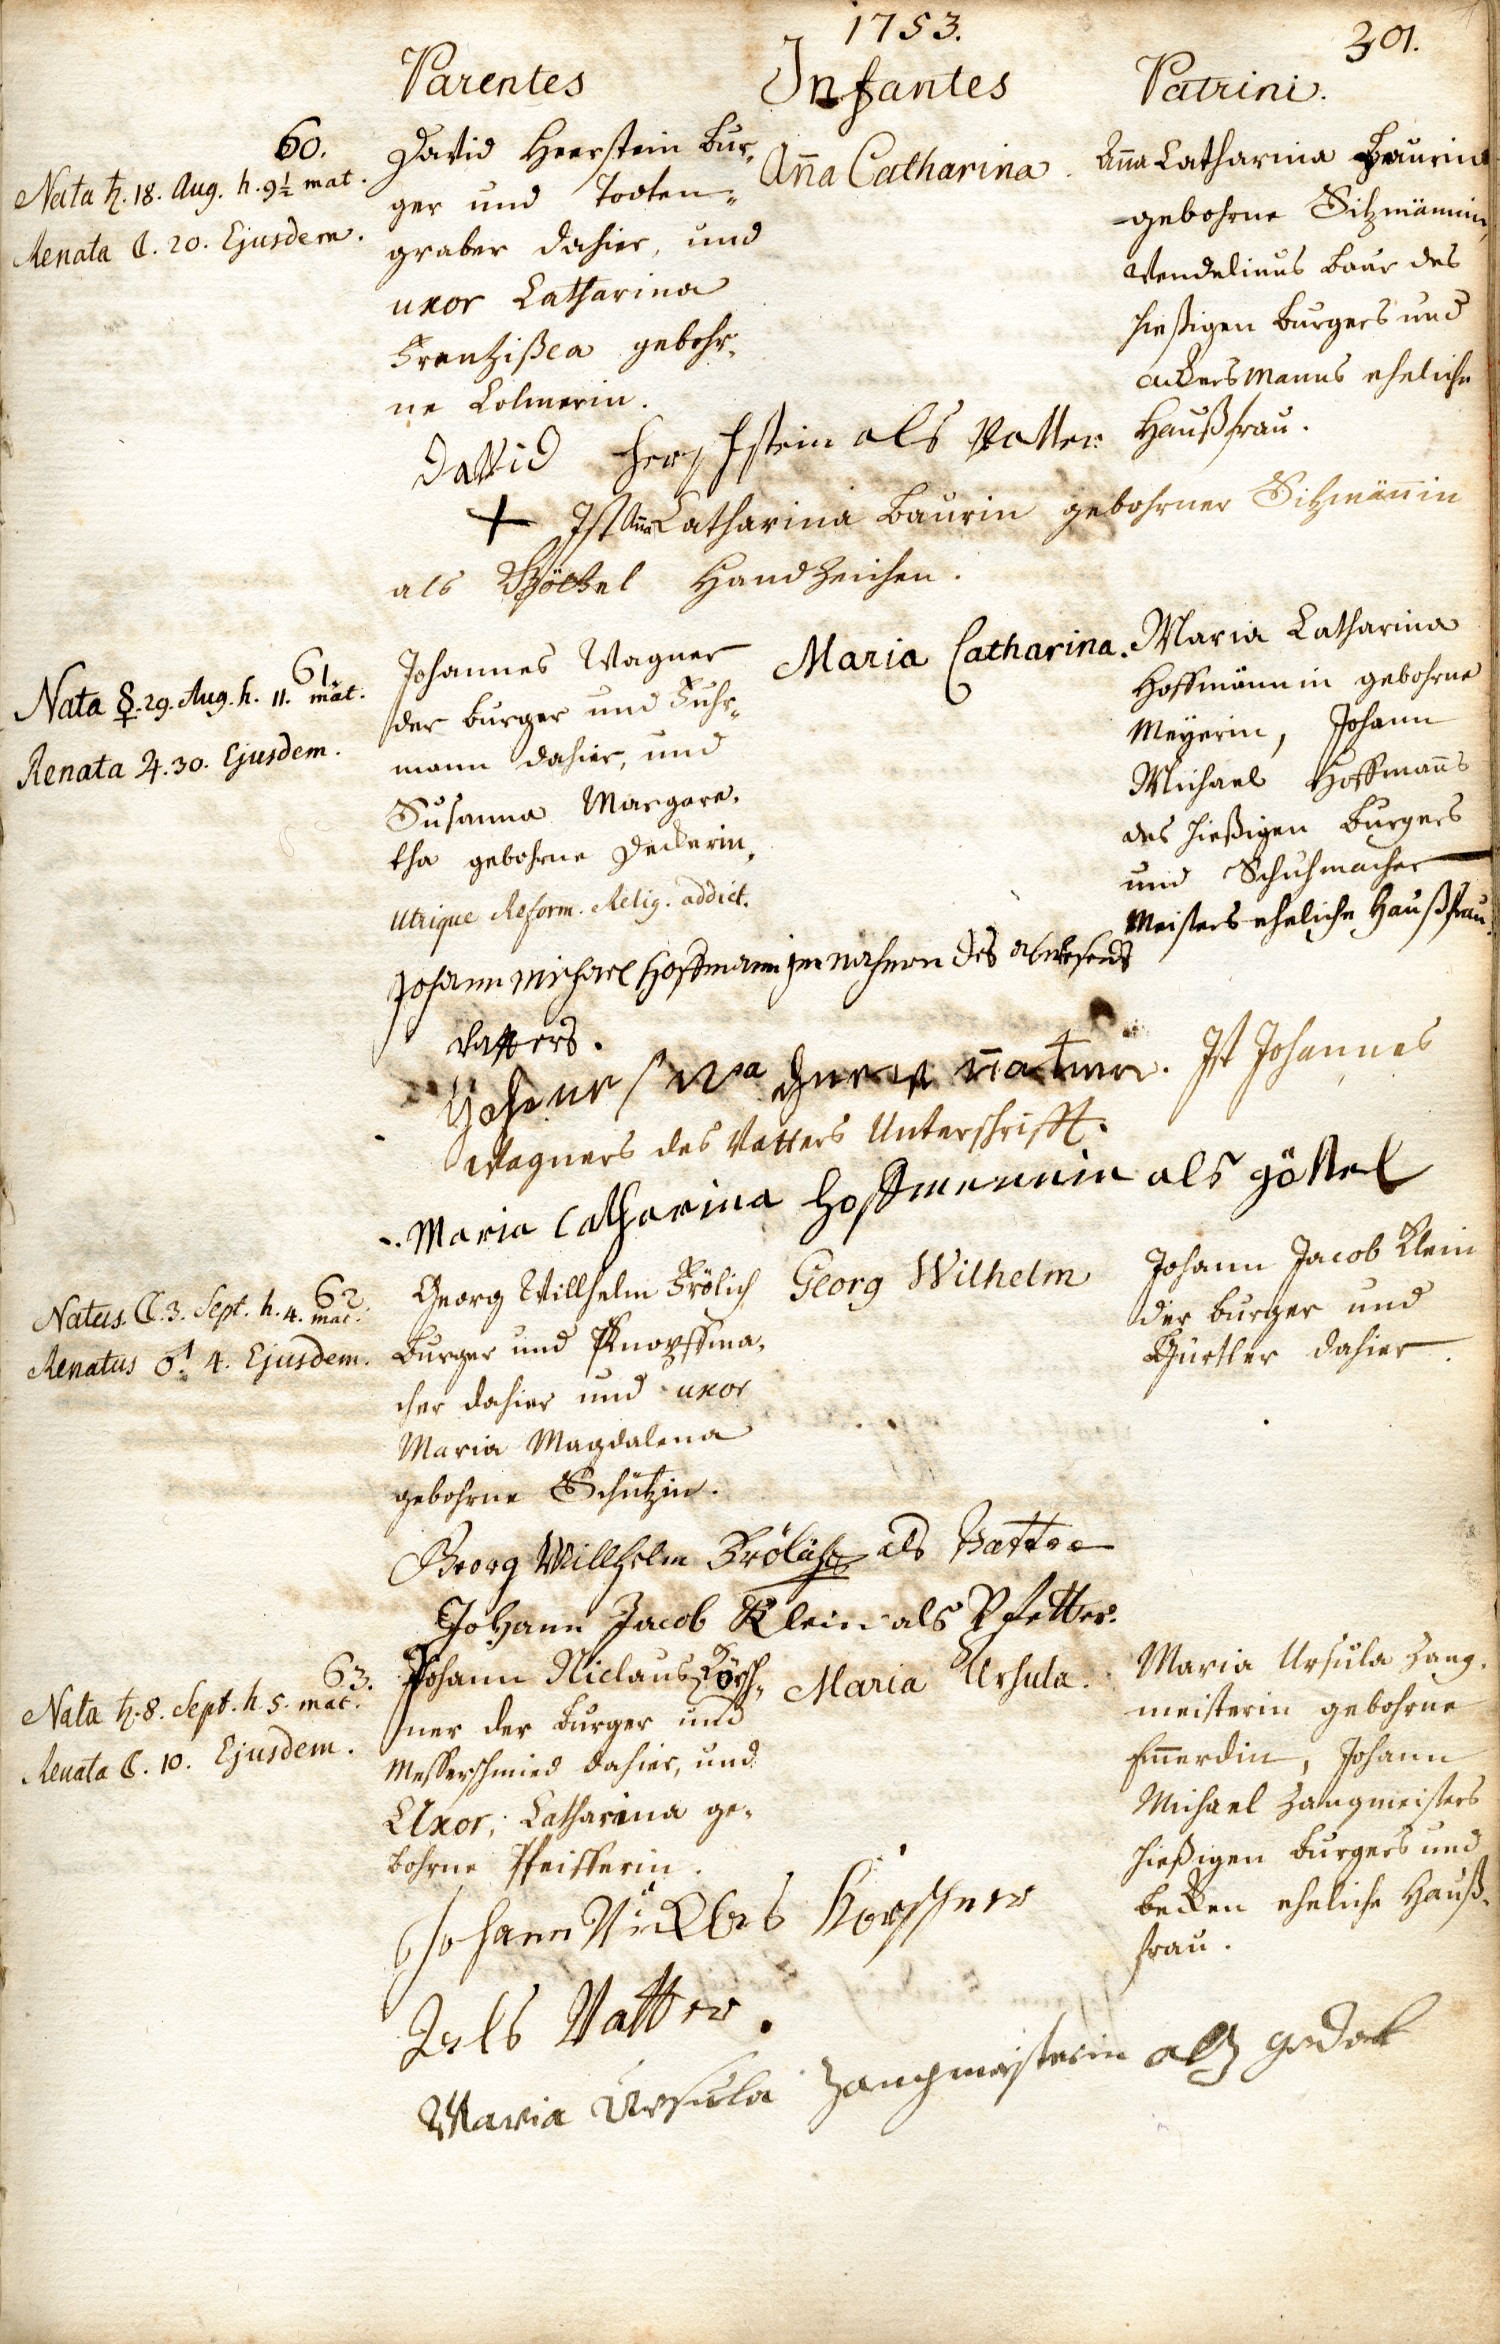 1753.
301.
Parentes
Infantes
Patrini.
60.
Nata ♄. 18. Aug. h. 9½ mat.
Renata ☾. 20. Ejusdem.
David Heerstein Bur-
ger und Todten-
graber dahier, und
uxor Catharina
Frantzißca gebohr-
ne Colmerin.
Anna Catharina.
Anna Catharina Baurin
gebohrne Sitzmännin,
Wendelinus Baur des
hießigen Burgers und
Ackersmanns eheliche
Haußfrau.
David Herschstein als Vatter
+ Ist Anna Catharina Baurin gebohrner Sitzmännin
als Göttel Handzeichen.
61.
Nata ☿. 29. Aug. h. 11. mat.
Renata ♃. 30. Ejusdem.
Johannes Wagner
der Burger und Fuhr-
mann dahier, und
Susanna Margare-
tha gebohrne Deckerin,
Utrique Reform. Relig. addict.
Maria Catharina.
Maria Catharina
Hoffmännin gebohrne
Meyerin, Johann
Michael Hoffmanns
des hießigen Burgers
und Schuhmacher
Meisters eheliche Haußfrau.
Johann Michael Hoffmann im nahmen des abwesends
Vatters.
Ist Johannes
Wagners des Vatters Unterschrifft.
Maria Catharina Hoffmennin als göttel
62.
Natus ☾. 3. Sept. h. 4. mat.
Renatus ♂. 4. Ejusdem.
Georg Willhelm Frölich
Burger und Knopffma-
cher dahier und uxor
Maria Magdalena
gebohrne Schützin.
Georg Wilhelm
Johann Jacob Klein
der Burger und
Gürtler dahier.
Georg Willhelm Frölich als Vatter
Johann Jacob Klein als Pfetter.
63.
Nata ♄. 8. Sept. h. 5. mat.
Renata ☾. 10. Ejusdem.
Johann Niclaus Körsch-
ner der Burger und
Messerschmied dahier, und
Uxor, Catharina ge-
bohrne Pfeifferin.
Maria Ursula.
Maria Ursula Zang-
meisterin gebohrne
Emerdin, Johann
Michael Zangmeisters
hießigen Burgers und
Becken eheliche Hauß-
frau.
Johann Nicklas Körschner
Als Vatter.
Maria Ursula Zangmeisterin alß godel